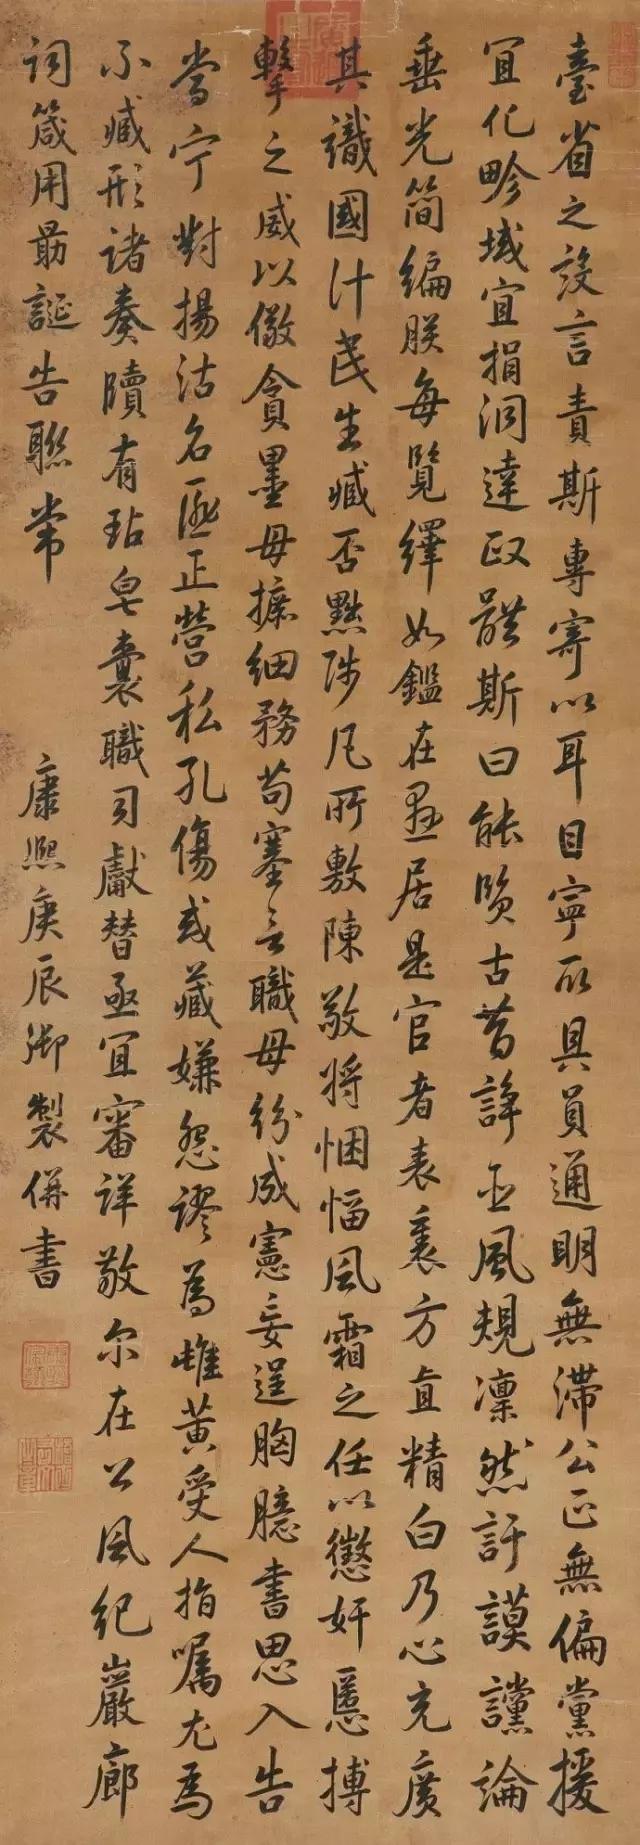 臺省之設言責斯專寄以耳目寧取具員通明無滯公正無偏黨援
宜化畛域宜捐洞達政體斯曰能賢古昔諍臣風規凜然訏謨讜論
垂光簡編朕每覽繹如鑑在懸居是官者表裏方直精白乃心充廣
其識國計民生臧否黜陟凡所敷陳敬將悃愊風霜之任以懲奸慝搏
擊之威以儆貪墨毋摭細務苟塞言職毋紛成憲妄逞胸臆書思入告
當宁對揚沽名匪正營私孔傷或藏嫌怨謬為雌黃受人指囑尤為
不臧形諸奏牘有玷皂囊職司獻替亟宜審詳敬尔在公風紀巖廊
詞箴用勗誕告聯常
康熙庚辰御製併書